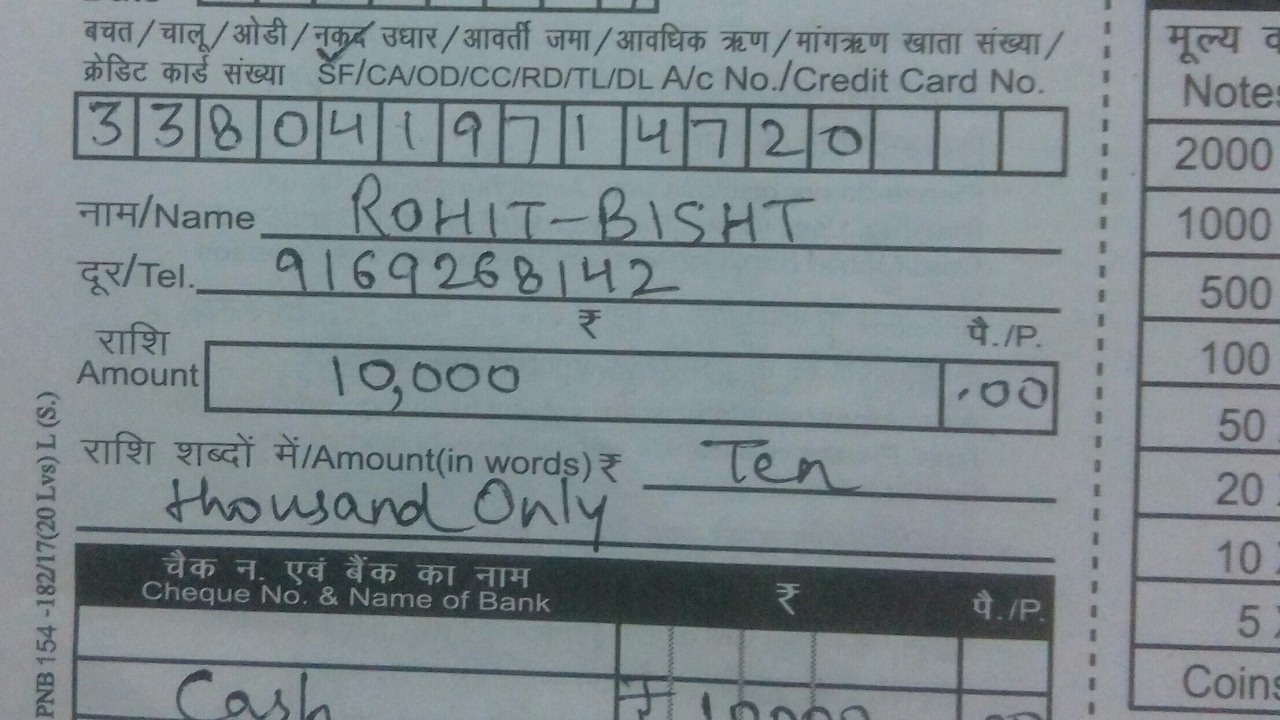 बचत/चालू/ओडी/नकद उधार/आवर्ती जमा/आवधिक ऋण/मांगऋण खाता संख्या/
क्रेडिट कार्ड संख्या SF/CA/OD/CC/RD/TL/DL A/c No./Credit Card No.
3380419714720
नाम/Name ROHIT-BISHT
दूर/Tel. 9169268142
₹ पै./P.
राशि
Amount 10,000 .00
राशि शब्दों में/Amount(in words) ₹ Ten
thousand Only
चैक न. एवं बैंक का नाम
Cheque No. & Name of Bank ₹ पै./P.
Cash ₹ 10000 00
PNB 154 -182/17(20 Lvs) L (S.)
मूल्य
Notes
2000
1000
500
100
50
20
10 X
5 X
Coins